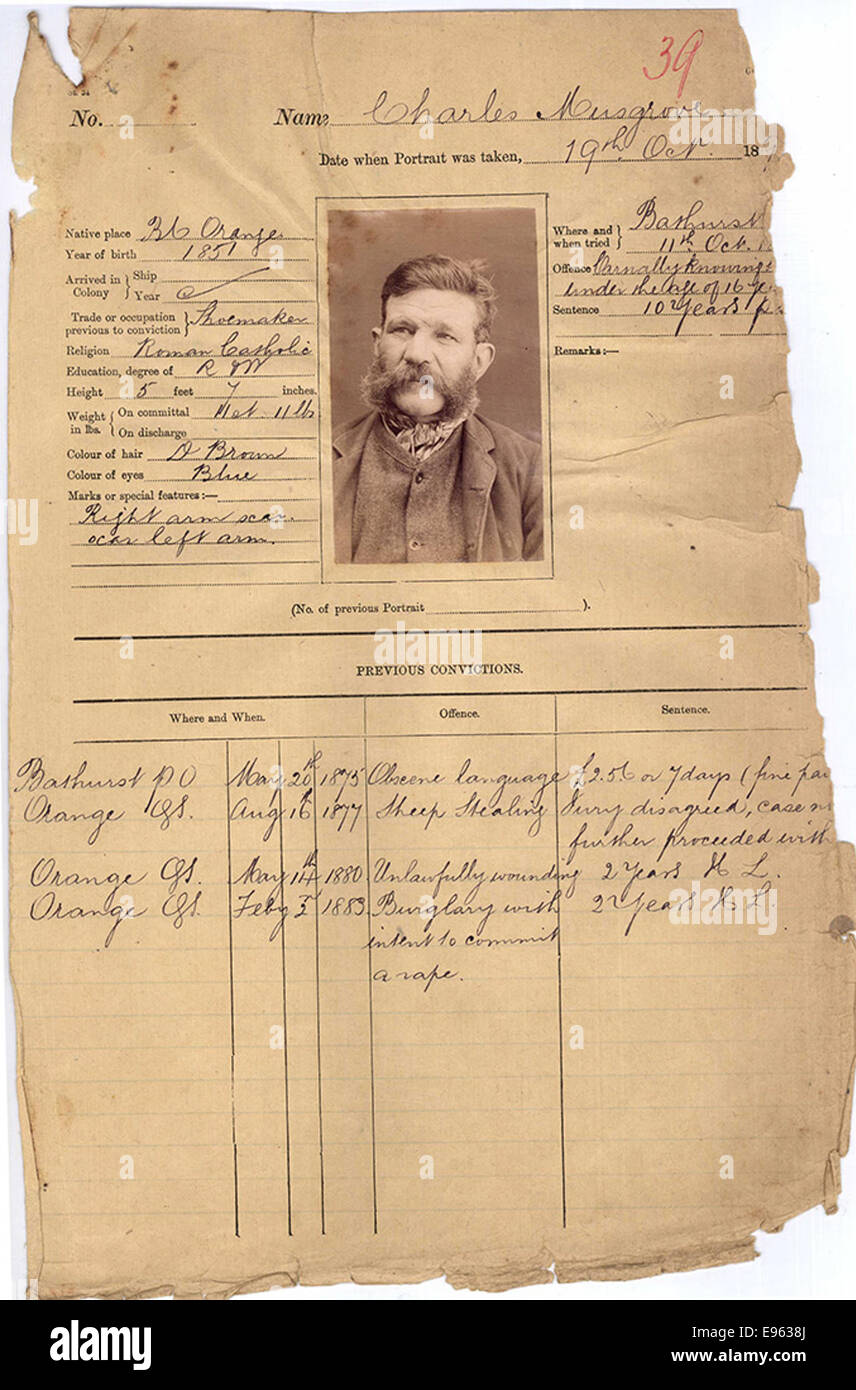 39
No. Name Charles Musgrove
Date when Portrait was taken, 19th Oct. 18
Native place Orange
Year of birth 1851
Arrived in Colony } Ship
Year
Trade or occupation previous to conviction } Shoemaker
Religion Roman Catholic
Education, degree of R & W
Height 5 feet 7 inches.
Weight in lbs. { On committal 11st. 11lbs
On discharge
Colour of hair D Brown
Colour of eyes Blue
Marks or special features:—
Right arm scar.
scar left arm.
Where and when tried } Bathurst
11th Oct.
Offence Carnally knowing
under the age of 16
Sentence 10 Years
Remarks:—
(No. of previous Portrait ).
PREVIOUS CONVICTIONS.
Where and When. Offence. Sentence.
Bathurst PO May 20th 1875 Obscene language £2.5.6 or 7 days (fine
Orange QS. Aug 16th 1877 Sheep Stealing Jury disagreed, case
further proceeded with
Orange QS. May 14th 1880 Unlawfully wounding 2 Years H L.
Orange QS. Feby 1883 Burglary with 2 Years H L.
intent to commit
a rape.
alamy
Image ID: E9638J
www.alamy.com